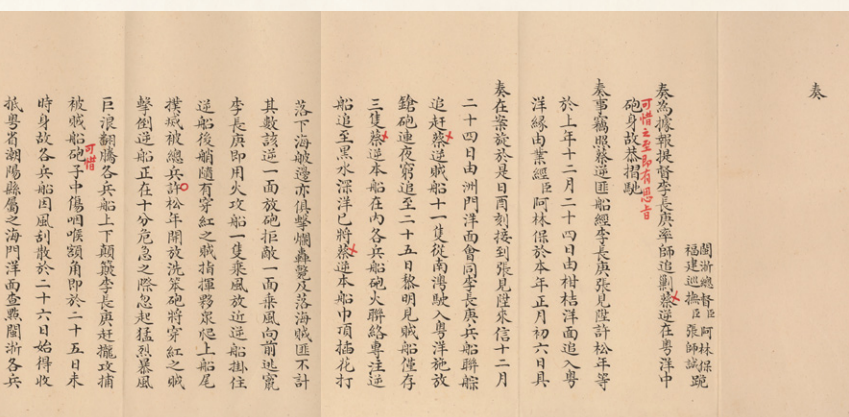 奏
閩浙總督臣阿林保跪
福建巡撫臣張師誠
奏為據報提督李長庚率師追剿蔡逆在粤洋中
砲身故恭摺馳
可惜之至即有恩旨
奏事竊照蔡逆匪船經李長庚張見陞許松年等
於上年十二月二十四日由柑桔洋面追入粤
洋緣由業經臣阿林保於本年正月初六日具
奏在案旋於是日酉刻接到張見陞來信十二月
二十四日由洲門洋面會同李長庚兵船聯䑸
追赶蔡逆賊船十一隻從南灣駛入粤洋施放
鎗砲連夜窮追至二十五日黎明見賊船僅存
三隻蔡逆本船在內各兵船砲火聯絡專注逆
船追至黑水深洋已將蔡逆本船巾頂插花打
落下海艍邊亦俱擊爛轟斃及落海賊匪不計
其數該逆一面放砲拒敵一面乘風向前逃竄
李長庚即用火攻船一隻乘風放近逆船掛住
逆船後艄隨有穿紅之賊指揮夥衆爬上船尾
撲滅被總兵許松年開放洗笨砲將穿紅之賊
擊倒逆船正在十分危急之際忽起猛烈暴風
巨浪翻騰各兵船上下顛簸李長庚赶攏攻捕
被賊船砲子中傷咽喉額角即於二十五日未
可惜
時身故各兵船因風刮散於二十六日始得收
抵粤省潮陽縣屬之海門洋面查點閩浙各兵